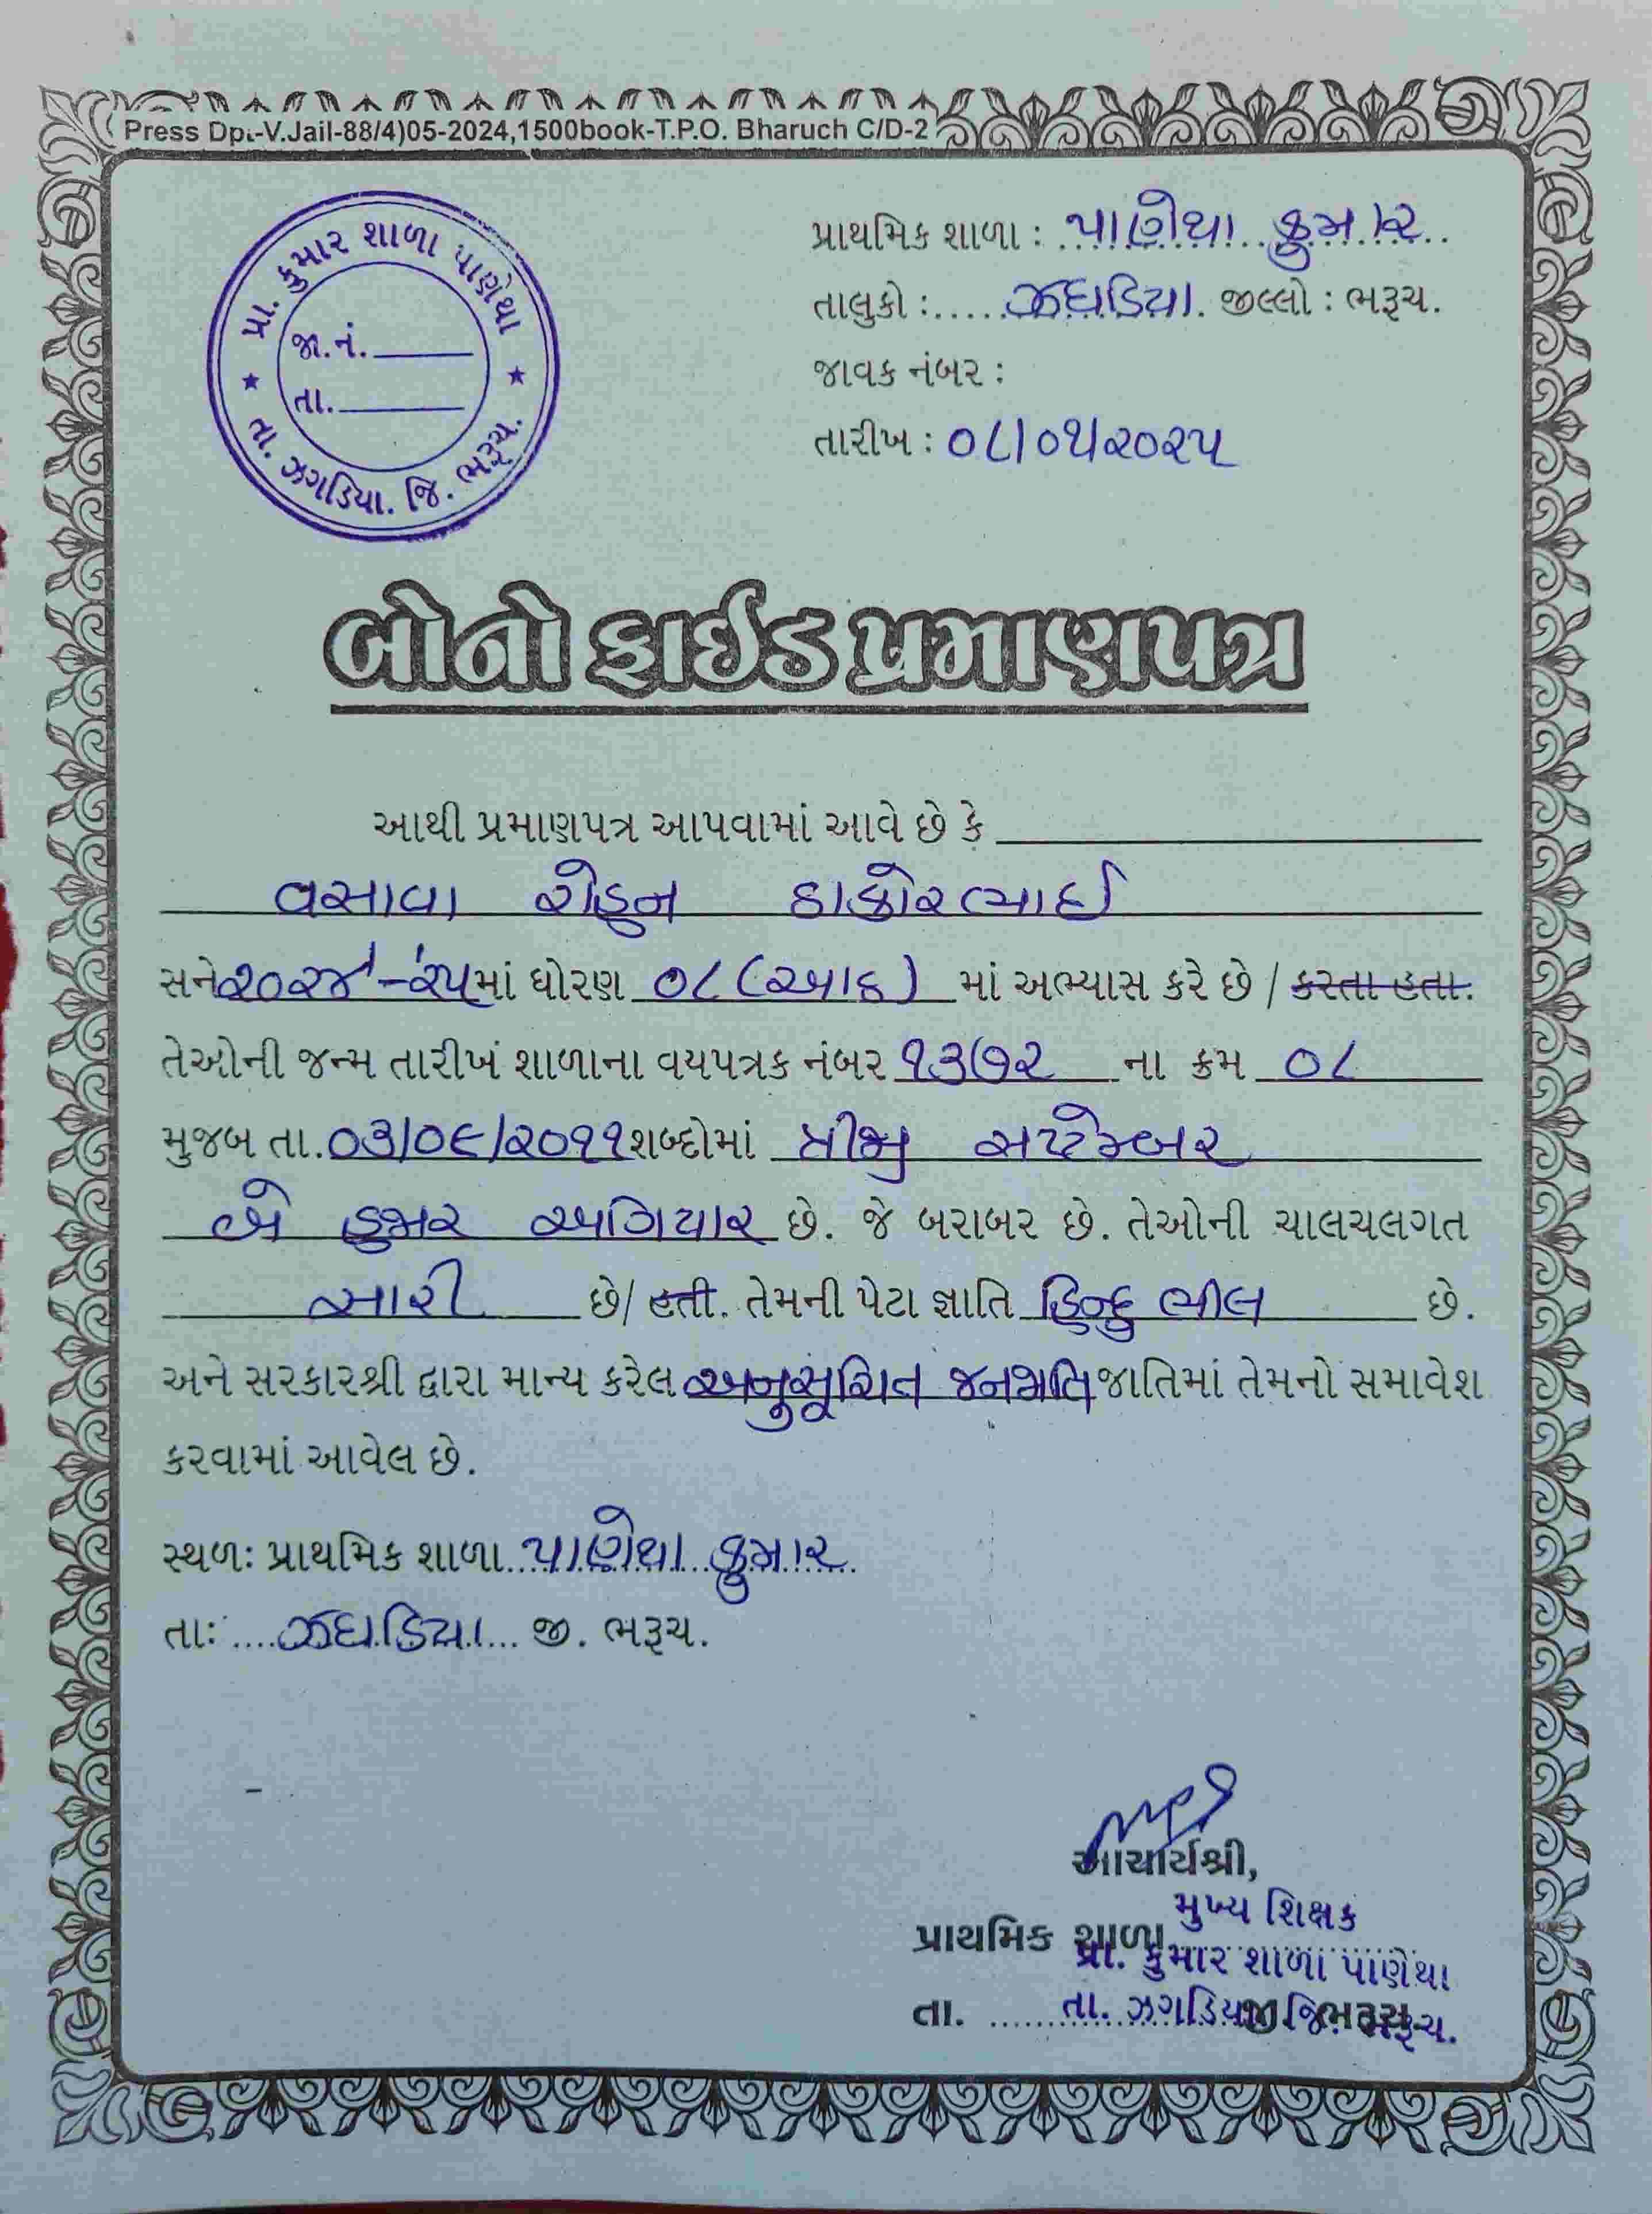 Press Dpt-V.Jail-88/4)05-2024,1500book-T.P.O. Bharuch C/D-2
પ્રા. કુમાર શાળા પાણેથા
જા.નં.
તા.
તા. ઝગડિયા. જિ. ભરૂચ.
પ્રાથમિક શાળા : પાણેથા કુમાર
તાલુકો : ઝઘડિયા. જીલ્લો : ભરૂચ.
જાવક નંબર :
તારીખ : ૦૮/૦૧/૨૦૨૫
બોનો ફાઈડ પ્રમાણપત્ર
આથી પ્રમાણપત્ર આપવામાં આવે છે કે
વસાવા રોહન ઠાકોરભાઈ
સને ૨૦૨૪-૨૫ માં ધોરણ ૦૮ (આઠ) માં અભ્યાસ કરે છે / કરતા હતા.
તેઓની જન્મ તારીખ શાળાના વયપત્રક નંબર ૧૩૭૨ ના ક્રમ ૦૮
મુજબ તા. ૦૩/૦૯/૨૦૧૧ શબ્દોમાં ત્રીજી સપ્ટેમ્બર
બે હજાર અગિયાર છે. જે બરાબર છે. તેઓની ચાલચલગત
સારી છે/ હતી. તેમની પેટા જ્ઞાતિ હિન્દુ ભીલ છે.
અને સરકારશ્રી દ્વારા માન્ય કરેલ અનુસૂચિત જનજાતિ જાતિમાં તેમનો સમાવેશ
કરવામાં આવેલ છે.
સ્થળઃ પ્રાથમિક શાળા પાણેથા કુમાર
તાઃ ઝઘડિયા જી. ભરૂચ.
આચાર્યશ્રી,
મુખ્ય શિક્ષક
પ્રાથમિક શાળા
પ્રા. કુમાર શાળા પાણેથા
તા. જી. ભરૂચ
તા. ઝગડિયા જિ. ભરૂચ.